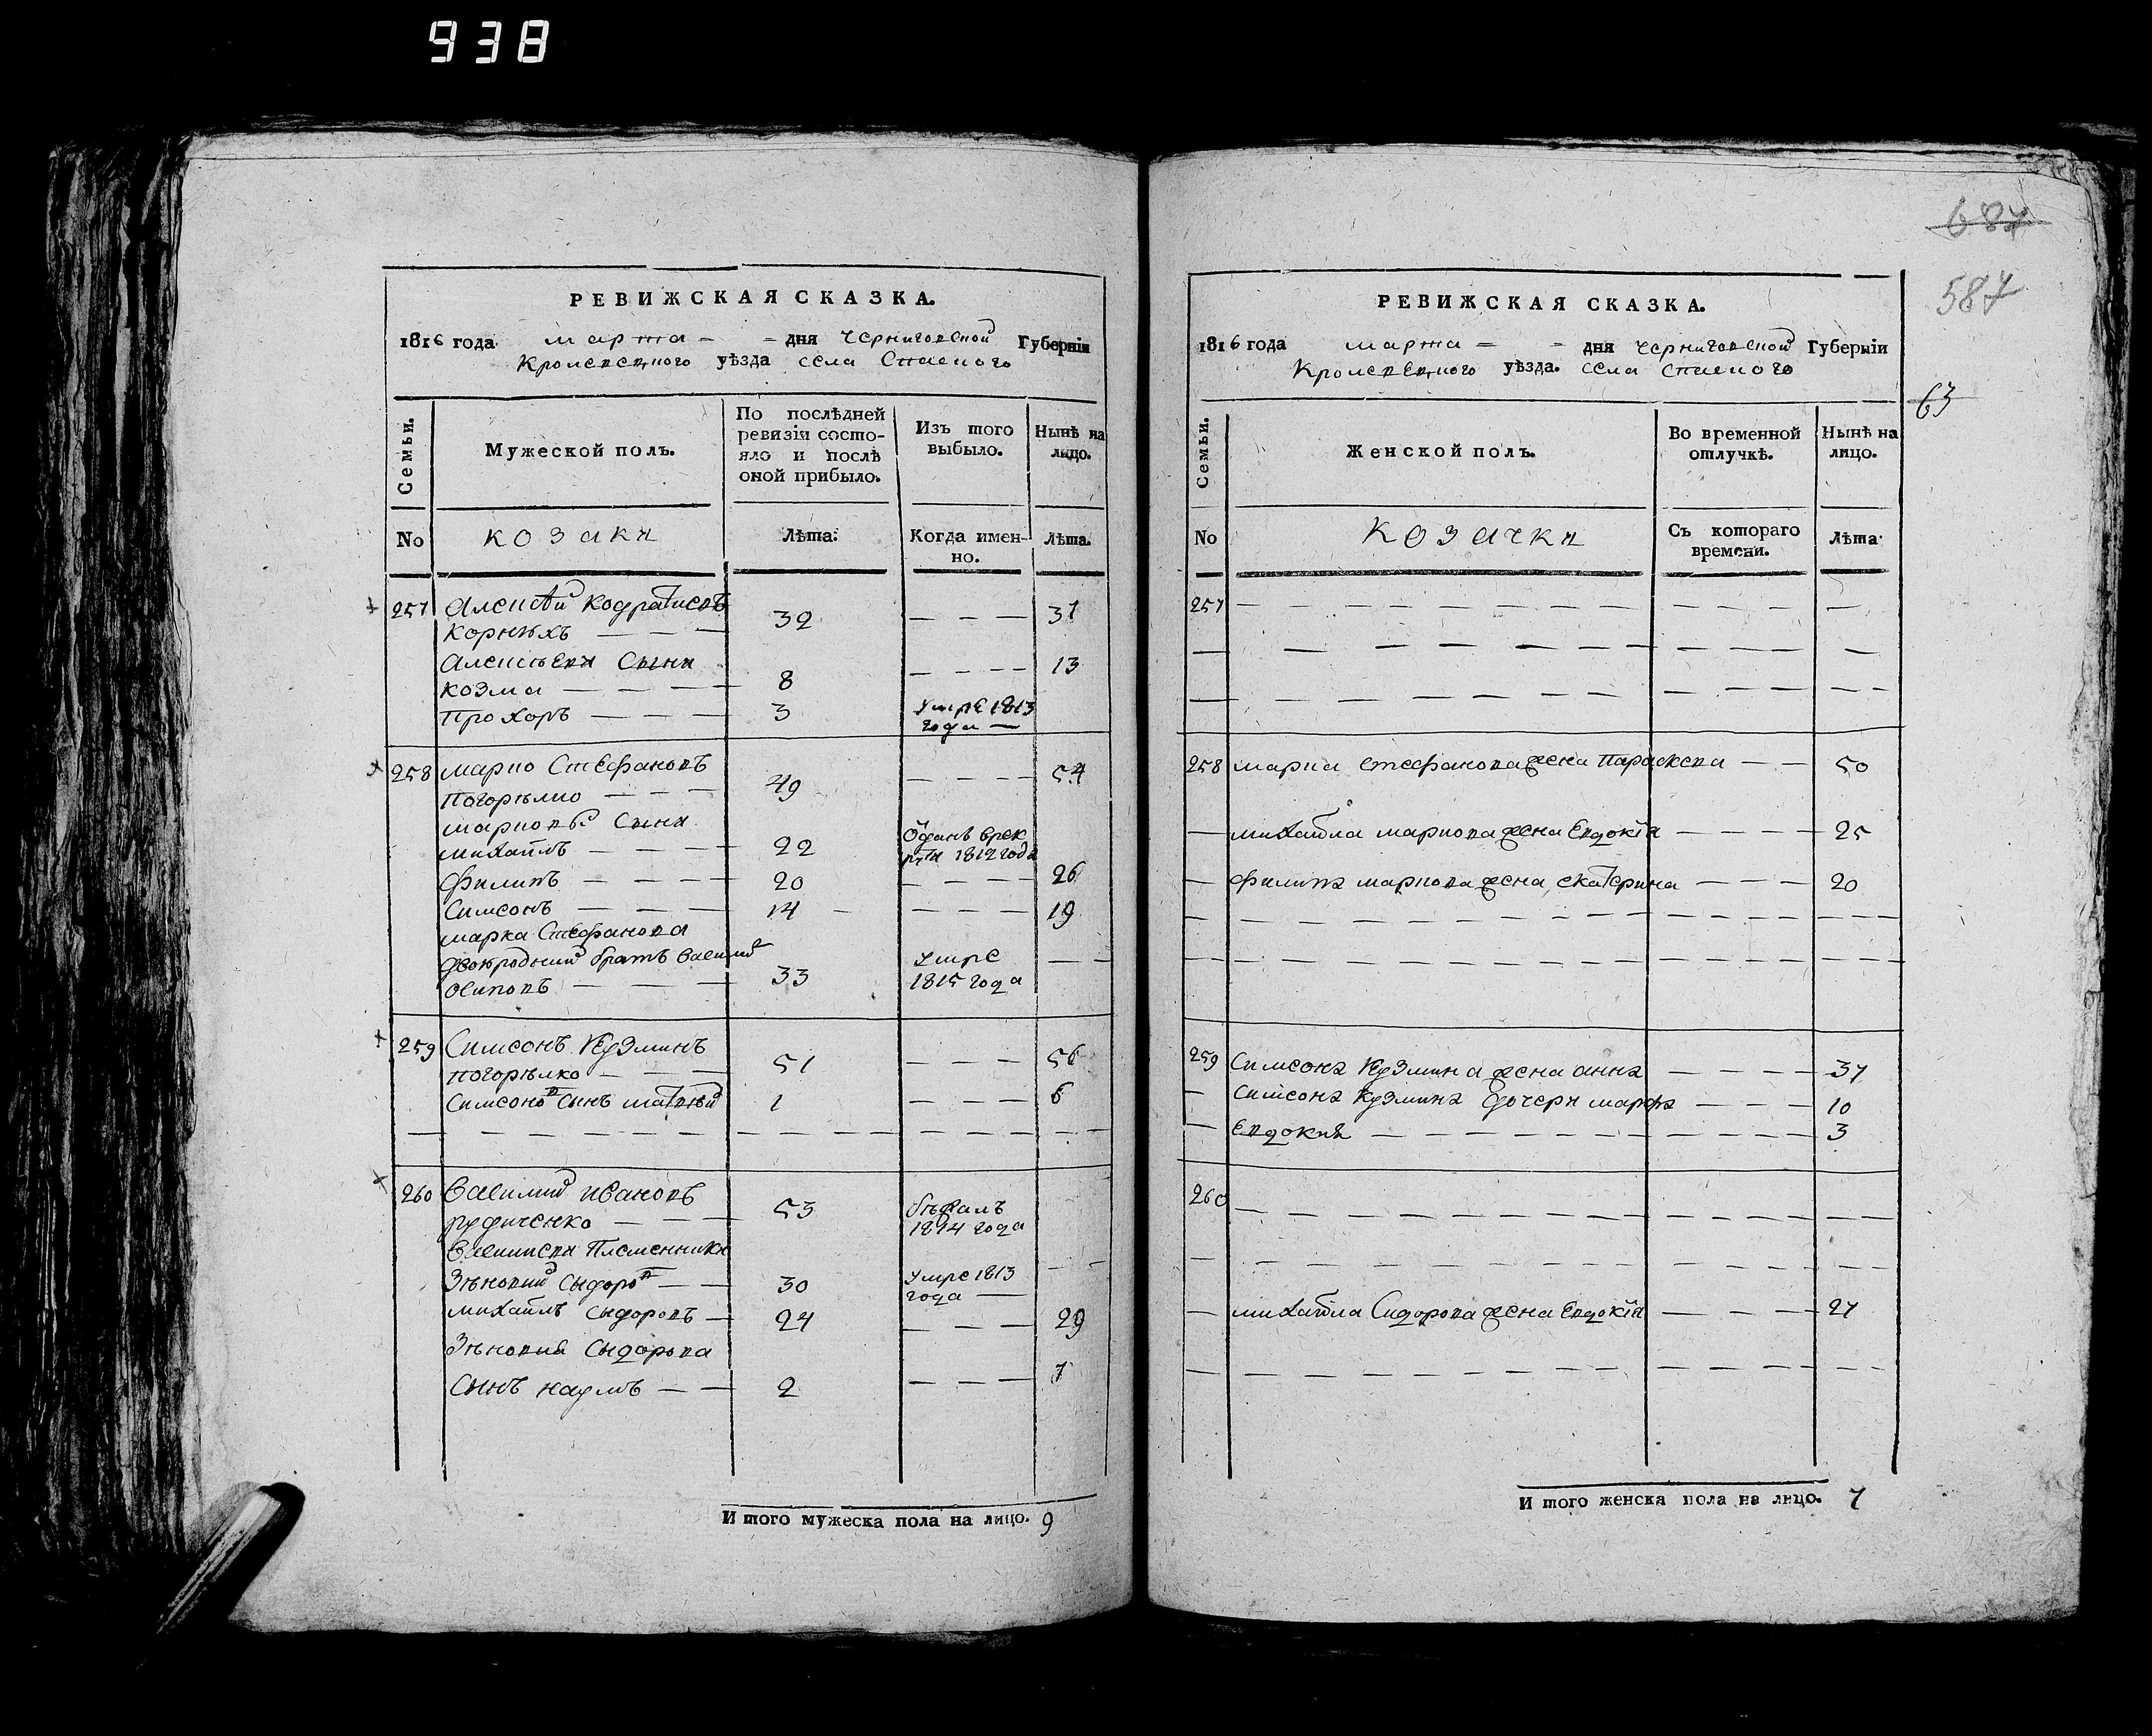 938
РЕВИЖСКАЯ СКАЗКА.
1816 года марта - - дня Черниговской Губерніи
Кролевецкого уѣзда села Спаского
Семьи.
Мужеской полъ.
По послѣдней ревизіи состояло и послѣ оной прибыло.
Изъ того выбыло.
Нынѣ на лицо.
No
козаки
Лѣта.
Когда именно.
Лѣта.
257 Алексѣй Кодратіевъ
Корнѣхъ — — — 32 — — — 37
Алексѣеви Сыни
Козма — — — 8 — — — 13
Прохоръ — — — 3 Умре 1813 года —
258 Марко Стефановъ
Погорѣлко — — — 49 — — — 54
Марковы Сыни
Михайлъ — — — 22 Отданъ в рекруты 1812 года
Филипъ — — — 20 — — — 26
Симсонъ — — — 14 — — — 19
Марка Стефанова
двоюродний братъ Василий
Осиповъ — — — 33 Умре 1815 года — —
259 Симсонъ Кузминъ
Погорѣлко — — — 51 — — — 56
Симсоновъ Сынъ Матвѣй 1 — — — 6
260 Василий Ивановъ
Рудиченко — — — 53 бѣжалъ 1814 года
Василиеви Племенники
Зѣновий Сыдоровъ — — 30 Умре 1813 года — — —
Михайлъ Сыдоровъ — 24 — — — 29
Зѣновия Сыдорова
Сынъ Наумъ — — 2 — — — 7
И того мужеска пола на лицо. 9
687
587
63
РЕВИЖСКАЯ СКАЗКА.
1816 года марта - - дня Черниговской Губерніи
Кролевецкого уѣзда. села Спаского
Семьи.
Женской полъ.
Во временной отлучкѣ.
Нынѣ на лицо.
No
Козачки
Съ котораго времени.
Лѣта.
257 — — —
258 Марка Стефанова жена Параскева — — 50
— Михайла Маркова жена Евдокія — — — 25
— Филипа Маркова жена Екатерина — — — 20
259 Симсона Кузмина жена Анна — — — 37
— Симсона Кузмина дочери Марфа — — — 10
— Евдокия — — — 3
260 — — —
— Михайла Сидорова жена Евдокія — — — 27
И того женска пола на лицо. 7